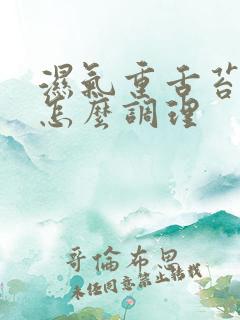 濕氣重舌苔
怎麼調理
哥倫布思
未经同意禁止转载